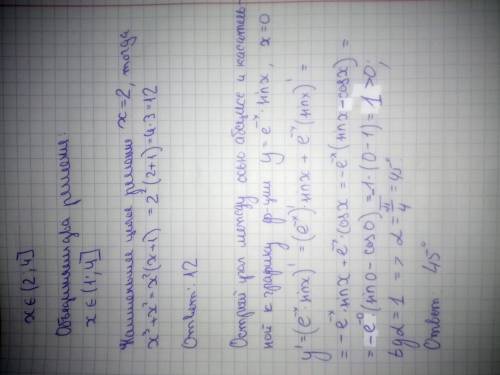 x ∈ (2; 4]
Объединяем два решения:
x ∈ (1; 4]
Наименьшее целое решение x = 2, тогда
x³ + x² = x²(x+1) = 2²(2+1) = 4·3 = 12
Ответ: 12
Острый угол между осью абсцисс и касатель-
ной к графику ф-ции y = e⁻ˣ · sinx, x = 0
y' = (e⁻ˣ · sinx)' = (e⁻ˣ)' · sinx + e⁻ˣ (sinx)' =
= -e⁻ˣ · sinx + e⁻ˣ · cosx = -e⁻ˣ (sinx - cosx) =
= -e⁻⁰ (sin0 - cos0) = 1 · (0 - 1) = 1 > 0;
tg α = 1 => α = π/4 = 45°
Ответ 45°